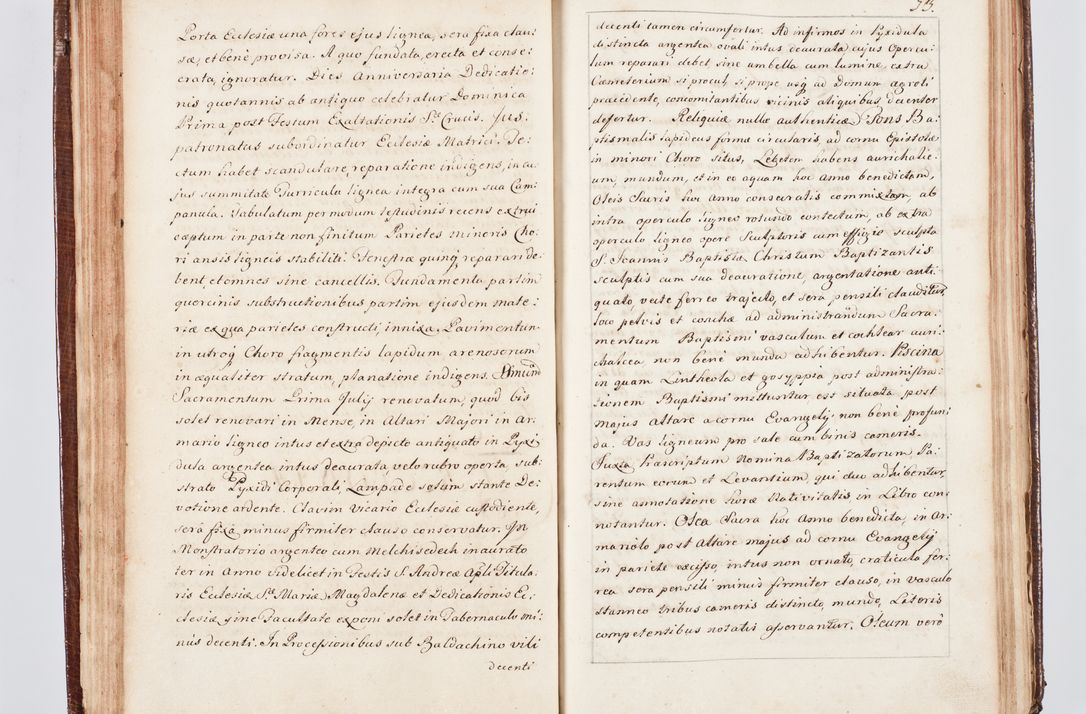 Porta Ecclesiæ una fores ejus lignea, sera fixa clau:
sæ, et bene provisa. A quo fundata, erecta et conse:
crata, ignoratur. Dies Anniversaria Dedicatio:
nis quotannis ab antiquo celebratur Dominica
Prima post Festum Exaltationis S: Crucis. Jus:
patronatus subordinatur Ecclesiæ Matrici. Te:
ctum habet scandulare, reparatione indigens, in cu:
jus summitate Turricula lignea integra cum sua Cam:
panula. Tabulatum per modum testudinis recens extrui
cæptum in parte non finitum Parietes minoris Cho:
ri ansis ligneis stabiliti. Fenestræ quinq reparari de:
bent, et omnes sine cancellis. Fundamenta partim
quercinis substructionibus partim ejusdem mate:
riæ ex qua parietes constructi, innixa. Pavimentum
in utroq Choro fragmentis lapidum arenosorum
inæqualiter stratum, planatione indigens.
Sacramentum Prima Julij renovatum, quod bis
solet renovari in Mense, in Altari Majori in Ar:
mario ligneo intus et extra depicto antiquato in Pyxi
dula argentea intus deaurata, velo rubro operta, sub:
strato Pyxidi Corporali, Lampade solum stante De:
votione ardente. Clavim Vicario Ecclesiæ custodiente,
sera fixa, minus firmiter clauso conservatur. In
Monstratorio argenteo cum Melchisedech inaurato
ter in Anno videlicet in Festis S. Andreæ Apli Titula:
ris Ecclesiæ, S: Mariæ Magdalenæ et Dedicationis Ec:
clesiæ sine Facultate exponi solet in Tabernaculo mi:
nus decenti. In Processionibus sub Baldachino vili
decenti
53.
decenti tamen circumfertur. Ad infirmos in Pyxidula
distincta argentea ovali intus deaurata cujus Opercu:
lum reparari debet sine umbella cum lumine, extra
Cæmeterium si procul, si prope usq ad Domum ægroti
præcedente, concomitantibus vicinis aliquibus decenter
defertur. Reliquiæ nullæ authenticæ. Fons Ba:
ptismalis lapideus forma circularis, ad cornu Epistolæ
in minori Choro situs, Lebetem habens aurichalce:
um, mundum, et in eo aquam hoc anno benedictam,
Oleis Sacris hoc anno consecratis commixtam, ab
intra operculo ligneo rotundo contectum, ab extra
operculo ligneo opere Sculptoris cum effigie sculpta
S. Joannis Baptistæ Christum Baptizantis
sculptis cum sua deauratione, argentatione anti:
quato, vecte ferreo trajecto, et sera pensili clauditur,
loco pelvis et conchæ ad administrandum Sacra:
mentum Baptismi vasculum et cochlear auri:
chalcea non bene munda adhibentur. Piscina
in quam Lintheola et gosyppia post administra:
tionem Baptismi mittuntur est situata post
majus Altare a cornu Evangelij non bene profun
da. Vas ligneum pro sale cum binis cameris.
Juxta Præscriptum Nomina Baptizatorum Pa:
rentum eorum et Levantium, qui duo adhibentur,
sine annotatione horæ Nativitatis, in Libro con:
notantur. Olea Sacra hoc Anno benedicta, in Ar:
mariolo post Altare majus ad cornu Evangelij
in pariete exciso, intus non ornato, craticula fer:
rea sera pensili minus firmiter clauso, in vasculo
stanneo tribus cameris distincto, mundo, Literis
competentibus notatis asservantur. Oleum vero